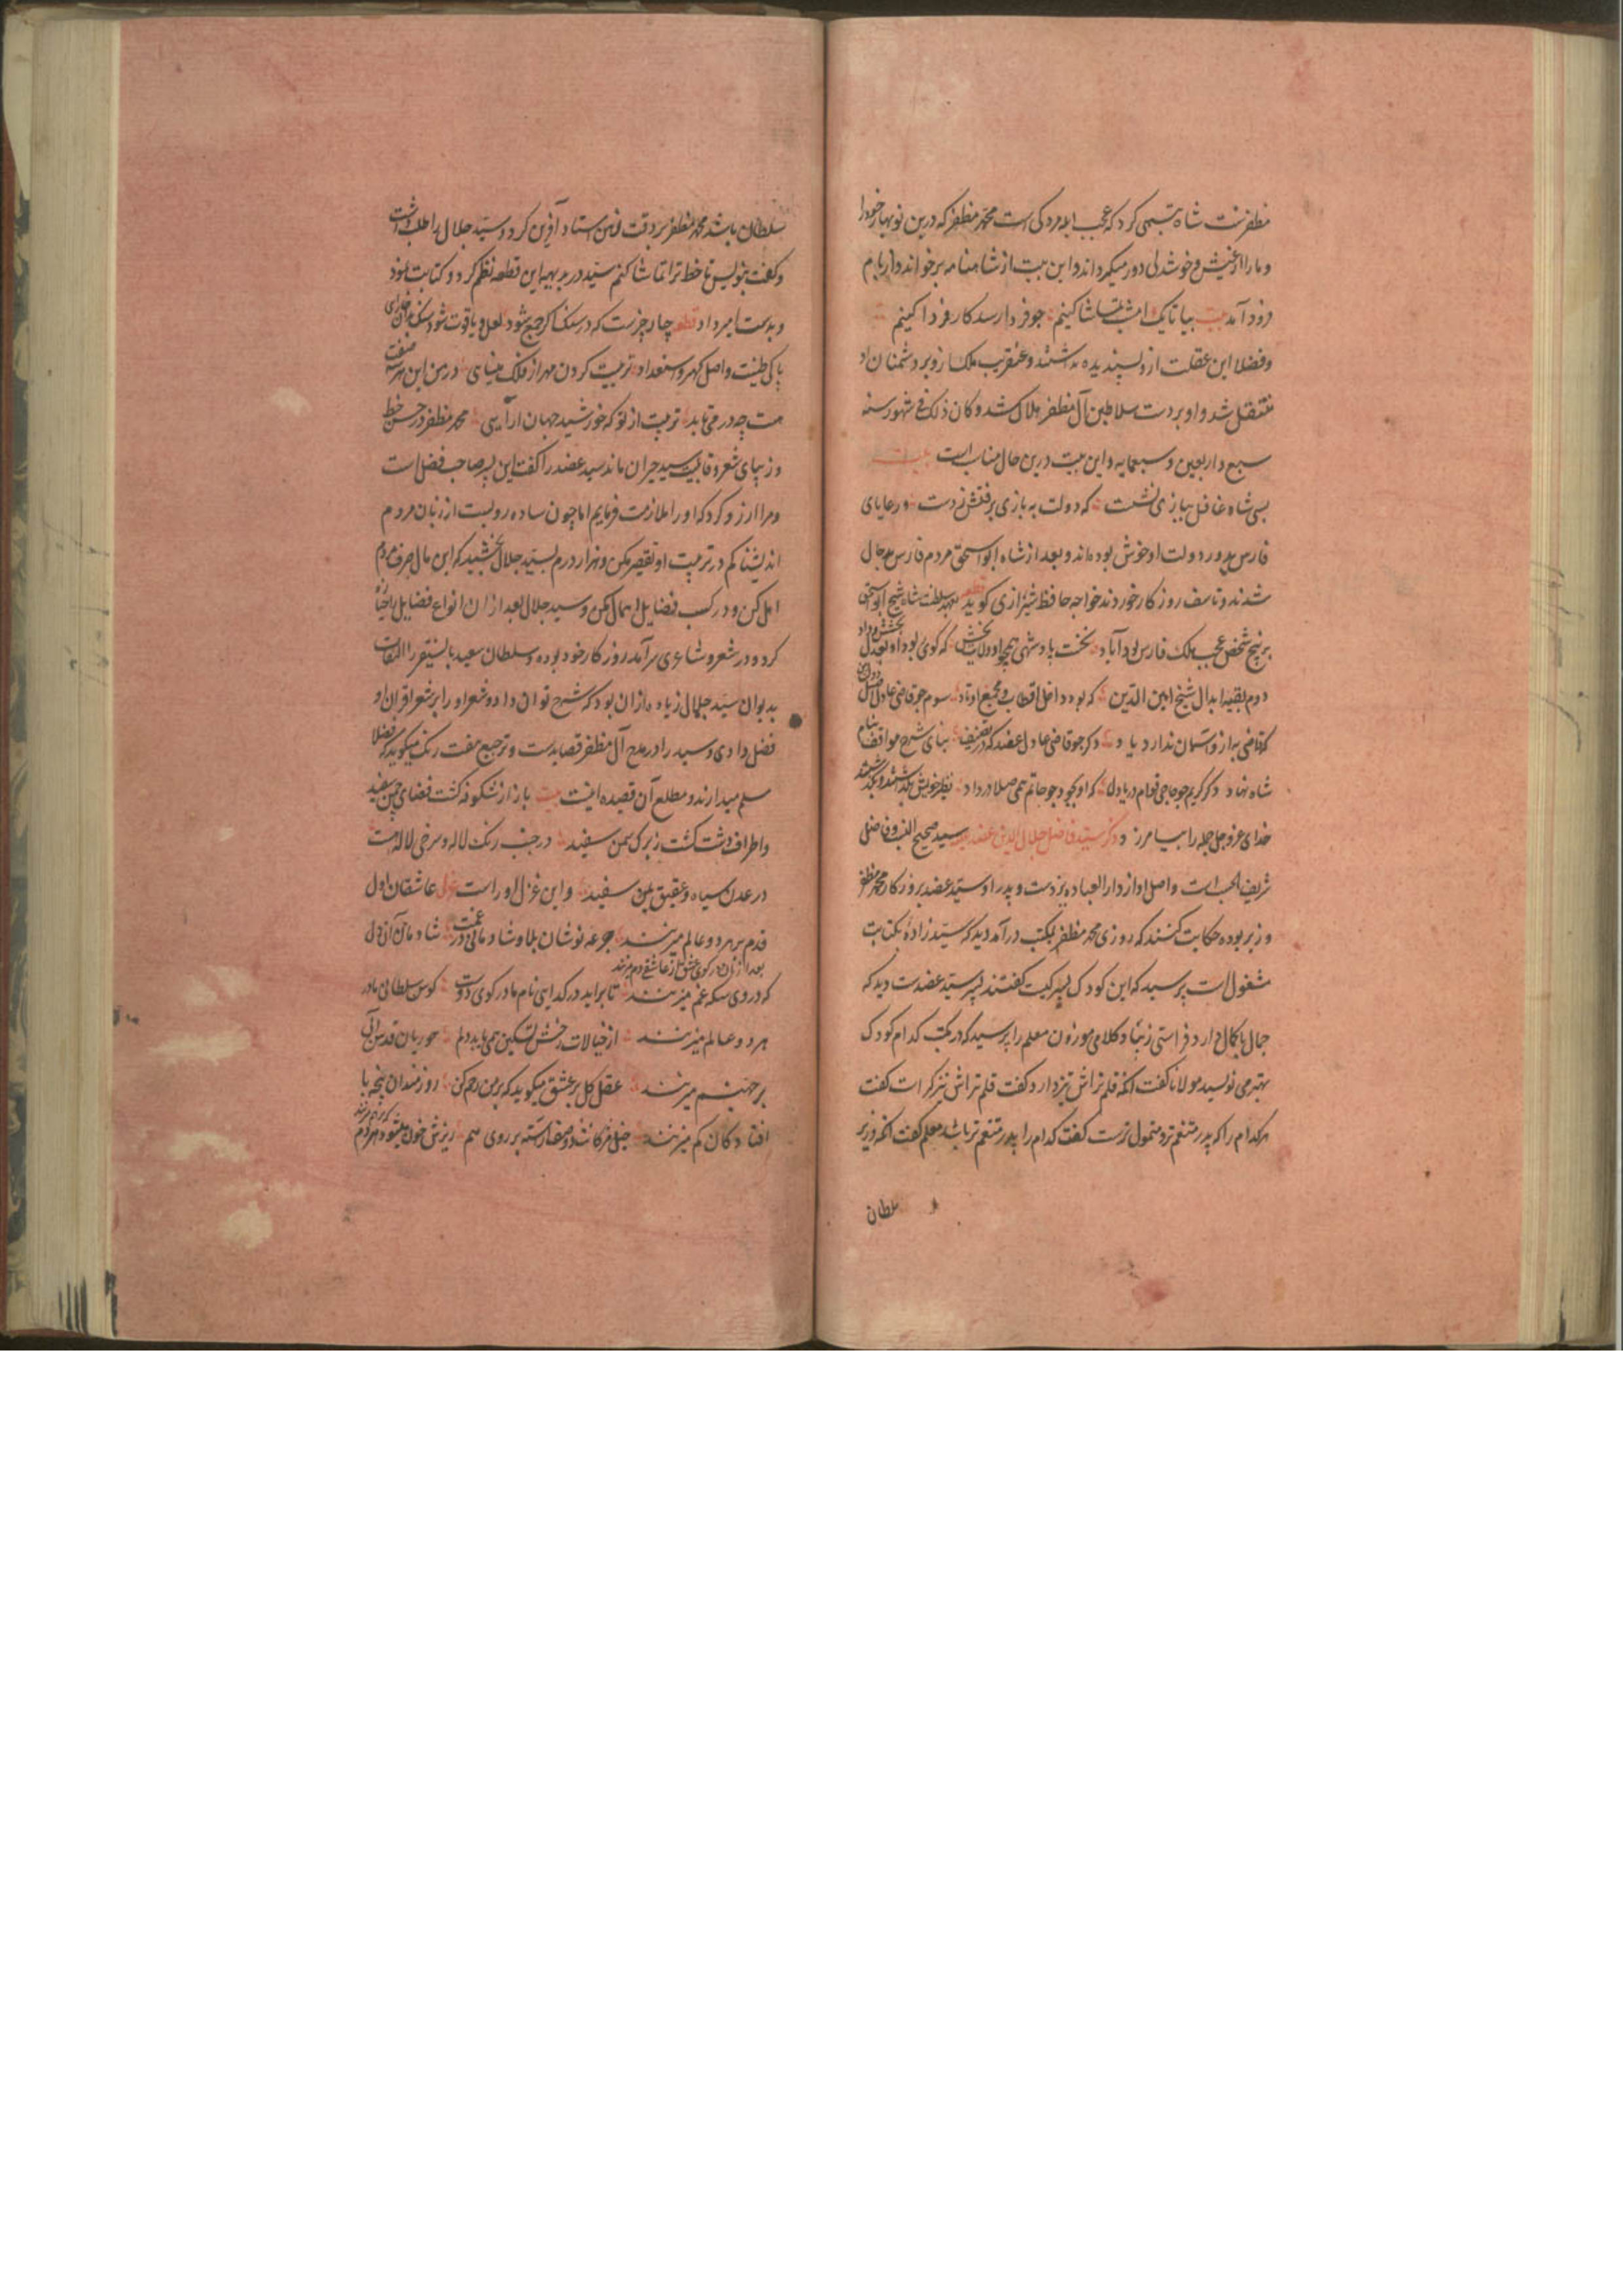 مظفرست شاه تبسمی کرد که عجب ابله مردکی است محمد مظفر که درین نوبهار خود را
و ما را از عیش و خوشدلی دور میگرداند و این بیت از شاهنامه برخواند و از بام
فرود آمد بیت بیا تا یک امشب تماشا کنیم چو فردا رسد کار فردا کنیم
و فضلا این غفلت ازو پسندیده نداشتند و عنقریب ملک ازو بر دشمنان او
منتقل شد و او بر دست سلاطین آل مظفر هلاک شد و کان ذلک فی شهور سنه
سبع و اربعین و سبعمایه و این بیت درین حال مناسب است بیت
بسی شاه غافل ببازی نشست که دولت به بازی برفتش ز دست و رعایای
فارس بدور دولت او خوش بوده‌اند و بعد از شاه ابو اسحق مردم فارس بدحال
شدند و تاسف روزگار خوردند خواجه حافظ شیرازی گوید قطعه بعهد سلطنت شاه شیخ ابو اسحق
به پنج شخص عجب ملک فارس بود آباد نخست پادشهی همچو او ولایت بخش که گوی بود او بعدل بخشش و داد
دوم بقیه ابدال شیخ امین الدین که بود داخل اقطاب و مجمع اوتاد سوم چو قاضی عادل اصیل دولت و دین
که قاضی به ازو آسمان ندارد یاد دگر چو قاضی عادل عضد که در تصنیف بنای شرح مواقف بنام
شاه نهاد دگر کریم چو حاجی قوام دریا دل که او بجود چو حاتم همی صلا در داد نظیر خویش بنگذاشتند و بگذشتند
خدای عز و جل جمله را بیامرزد ذکر سید فاضل جلال الدین عضد سید صحیح النسب و فاضل
شریف الحسب است و اصل او از دار العباده یزدست و پدر او سید عضد بروزگار محمد مظفر
وزیر بوده حکایت کنند که روزی محمد مظفر بمکتب درآمد دید که سید زاده بکتابت
مشغول است پرسید که این کودک پسر کیست گفتند پسر سید عضدست دید که
جمال با کمال دارد و فراستی زیبا و کلامی موزون معلم را پرسید که در مکتب کدام کودک
بهتر می نویسد مولانا گفت آنکه قلم تراش تیز دارد گفت قلم تراش تیز کراست گفت
هر کدام را که پدر متنعم تر و متمول ترست گفت کدام را پدر متنعم تر باشد معلم گفت آنکه وزیر
سلطان
سلطان باشد محمد مظفر بر دقت ذهن استاد آفرین کرد و سید جلال را طلب داشت
و گفت بنویس تا خط ترا تماشا کنم سید در بدیهه این قطعه نظم کرد و کتابت نمود
و بدست امیر داد قطعه چار چیزست که در سنگ اگر جمع شود لعل و یاقوت شود سنگ بدان خارای
پاکی طینت و اصل گهر و استعداد تربیت کردن مهر از فلک مینای در من این هر سه صفت
هست چه در می باید تربیت از تو که خورشید جهان آرایی محمد مظفر در حسن خط
و زیبای شعر و قابلیت سید حیران ماند سید عضد را گفت این پسر صاحب فضل است
و مرا آرزو کرد که او را ملازمت فرمایم اما چون ساده روست از زبان مردم
اندیشناکم در تربیت او تقصیر مکن و هزار درم بسید جلال بخشید که این مال صرف مردم
اهل کن و در کسب فضایل اهمال مکن و سید جلال بعد از آن انواع فضایل را حیازه
کرد و در شعر و شاعری سرآمد روزگار خود بوده و سلطان سعید بایسنقر را التفات
بدیوان سید جلال زیاده از آن بود که شرح توان داد و شعر او را بر شعر اقران او
فضل دادی و سید را در مدح آل مظفر قصایدست و ترجیع هفت رنگ میگوید که فضلا
مسلم میدارند و مطلع آن قصیده اینست بیت باز از شکوفه گشت فضای چمن سفید
و اطراف دشت گشت ز برگ سمن سفید در جنب رنگ لاله و سرخی لاله هست
در عدن سیاه و عقیق یمن سفید و این غزل او راست غزل عاشقان اول
قدم بر هر دو عالم میزنند بعد از آن در کوی عشق از عاشقی دم میزنند جرعه نوشان بلا و شادمانی در غمست شادمان آن دل
که در وی سکه غم میزنند تا برآید در گدایی نام ما در کوی دوست کوس سلطانی ما در
هر دو عالم میزنند از خیالات رخش تسکین همی یابد دلم حوریان قدس آبی
بر جهنم میزنند عقل کل بر عشق میگوید که بر من رحم کن زورمندان پنجه با
افتادگان کم میزنند خیل مژگانند و صف آراسته بر روی هم ریزش خون میشود هر دم که بر هم میزنند